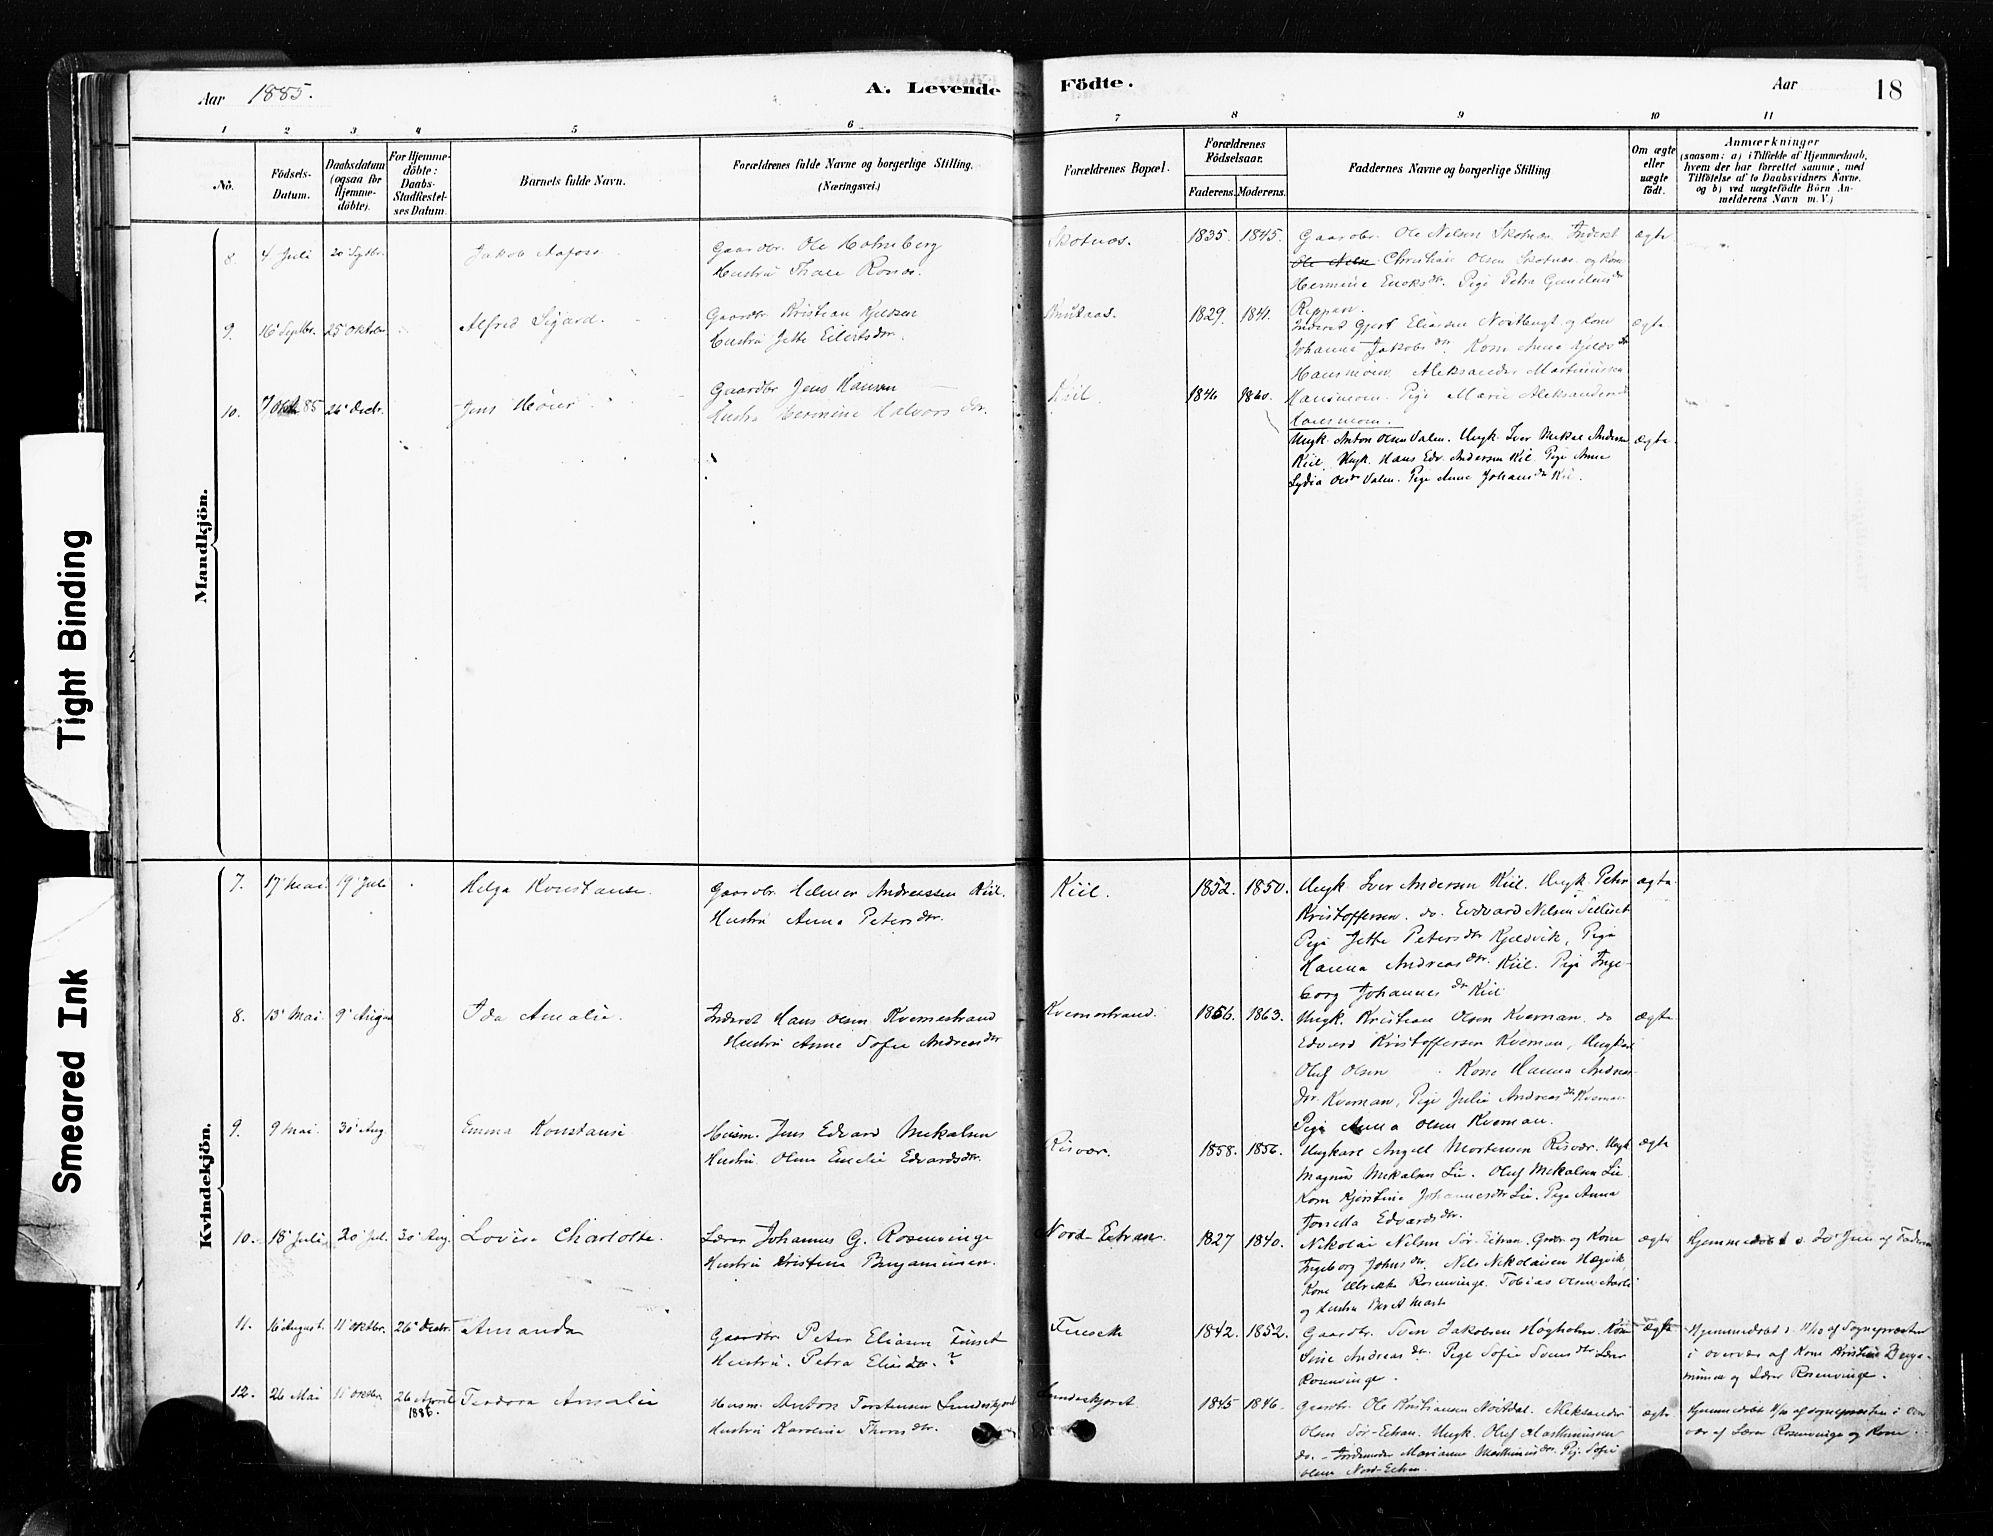 Aar 1885.
A. Levende Födte.
Aar
18
1 2 3 4 5 6 7 8 9 10 11
No.
Födsels-Datum.
Daabsdatum (ogsaa for Hjemme-döbte).
For Hjemme-döbte: Daabs-Stadfæstel-ses Datum.
Barnets fulde Navn.
Forældrenes fulde Navne og borgerlige Stilling. (Næringsvei.)
Forældrenes Bopæl.
Forældrenes Födselsaar.
Faderens. Moderens.
Faddernes Navne og borgerlige Stilling
Om ægte eller uægte födt.
Anmærkninger
(saasom: a) i Tilfælde af Hjemmedaab,
hvem der har forrettet samme, med
Tilföielse af to Daabsvidners Navne,
og b) ved uægtefödte Börn An-
melderens Navn m. V.)
Mandkjön.
8. 4 Juli 20 Septbr. Jakob
Gaardbr. Ole Holmberg
Hustru
Skotnes. 1835. 1845.
Gaardbr. Ole Nilsen Skotnes. Inderst
Christian Olsen Skotnes og Kone
Hermine Pige Petra
ægte
9. 16' Septbr. 25' Oktober Alfred Sigard.
Gaardbr. Kristian Kjeldsen
Hustru Jette Eilertsdtr.
1829 1841.
Inderst Eliassen og Kone
Johanna Jakobsdtr. Kone Anna
Aleksander Martinussen
Pige Marie
ægte
10. 7 85 26' Decbr. Jens
Gaardbr Jens Hansen
Hustru Hermine Halvorsdtr.
Kiil 1860.
Ungk. Anton Olsen Valen. Ungk. Iver Mekal Andersen
Kiil. Ungk. Hans Edv. Andersen Kiil. Pige Anne
Lydia Olsdr Valen. Pige Anne Johansdtr Kiil.
ægte
Kvindekjön.
7. 17' Mai. 19' Juli Helga Konstanse.
Gaardbr. Helmer Andreassen Kiil.
Hustru Anna Petersdtr.
Kiil. 1852. 1850.
Ungk. Iver Andersen Kiil. Ungk. Peter
Kristoffersen. do. Edvard Nilsen
Pige Jette Petersdtr Kjeldvik, Pige
Hanna Andreasdtr. Kiil. Pige Inge-
borg Johannesdtr Kiil
ægte
8. 13' Mai. 9' August Ida Amalie.
Inderst Hans Olsen Kvernestrand
Hustru Anne Sofie Andreasdtr
Kvernestrand. 1856. 1863.
Ungk. Kristian Olsen Kvernan. do
Edvard Kristoffersen Kvernan, Ungkarl
Oluf Olsen Kone Hanna Andreas-
dtr. Kvernan, Pige Julie Andreasdtr Kvernan
Pige Anna Olsen Kvernan.
ægte
9. 9 Mai. 30' Aug. Emma Konstanse
Husm. Jens Edvard Mekalsen
Hustru Oline Emelie Edvardsdtr.
Risvær. 1858. 1856.
Ungkarl Angell Mortensen Risvær. Ungk.
Magnus Mekalsen Lie. Oluf Mekalsen Lie.
Kone Kjerstine Johannesdtr Lie. Pige Anna
Edvardsdtr.
ægte
10. 18' Juli 20' Jul. 30' Aug. Lovise Charlotte.
Lærer Johannes G. Rosenvinge
Hustru Kristina Benjaminsen.
Nord-Eitran 1827 1840.
Nikolai Nilsen Sør-Eitran. Gaar og Kone
Ingeborg Johnsdtr. Nils Nikolaisen Hægvik,
Kone Ulrikke Rosenvinge. Tobias Olsen
og Hustru Berit
ægte
Hjemmedøbt af Faderen
11. 16' August. 11' Oktbr. 26' Decbr. Amanda
Gaardbr. Peter Eliasen Finset
Hustru. Petra Eliasdtr. ?
1842. 1852.
Gaardbr. Sven Jakobsen Høgholm. Kone
Line Andreasdtr. Pige Sofie Svensdtr Lærer
Rosenvinge.
ægte
Hjemmedøbt 11/10 af Sognepræsten
i overvær af Kone Kristine Benja-
minsen og Lærer Rosenvinge.
12. 26 Mai 11' Oktbr. 26 April 1886. Teodora Amalie
Husm. Anton Torstensen
Hustru Karoline Thorsdtr.
1845 1846.
Gaardbr. Ole Kristiansen Aleksander
Olsen Sør-Eitran. Ungk. Oluf Martinussen
do. - Jordemoder Marianne Martinusdtr. Pige Sofie
Olsen Nord-Eitran.
ægte
Hjemmedøbt 11/10 af Sognepræsten i over-
vær af Lærer Rosenvinge og Kone.
Tight Binding
Smeared Ink